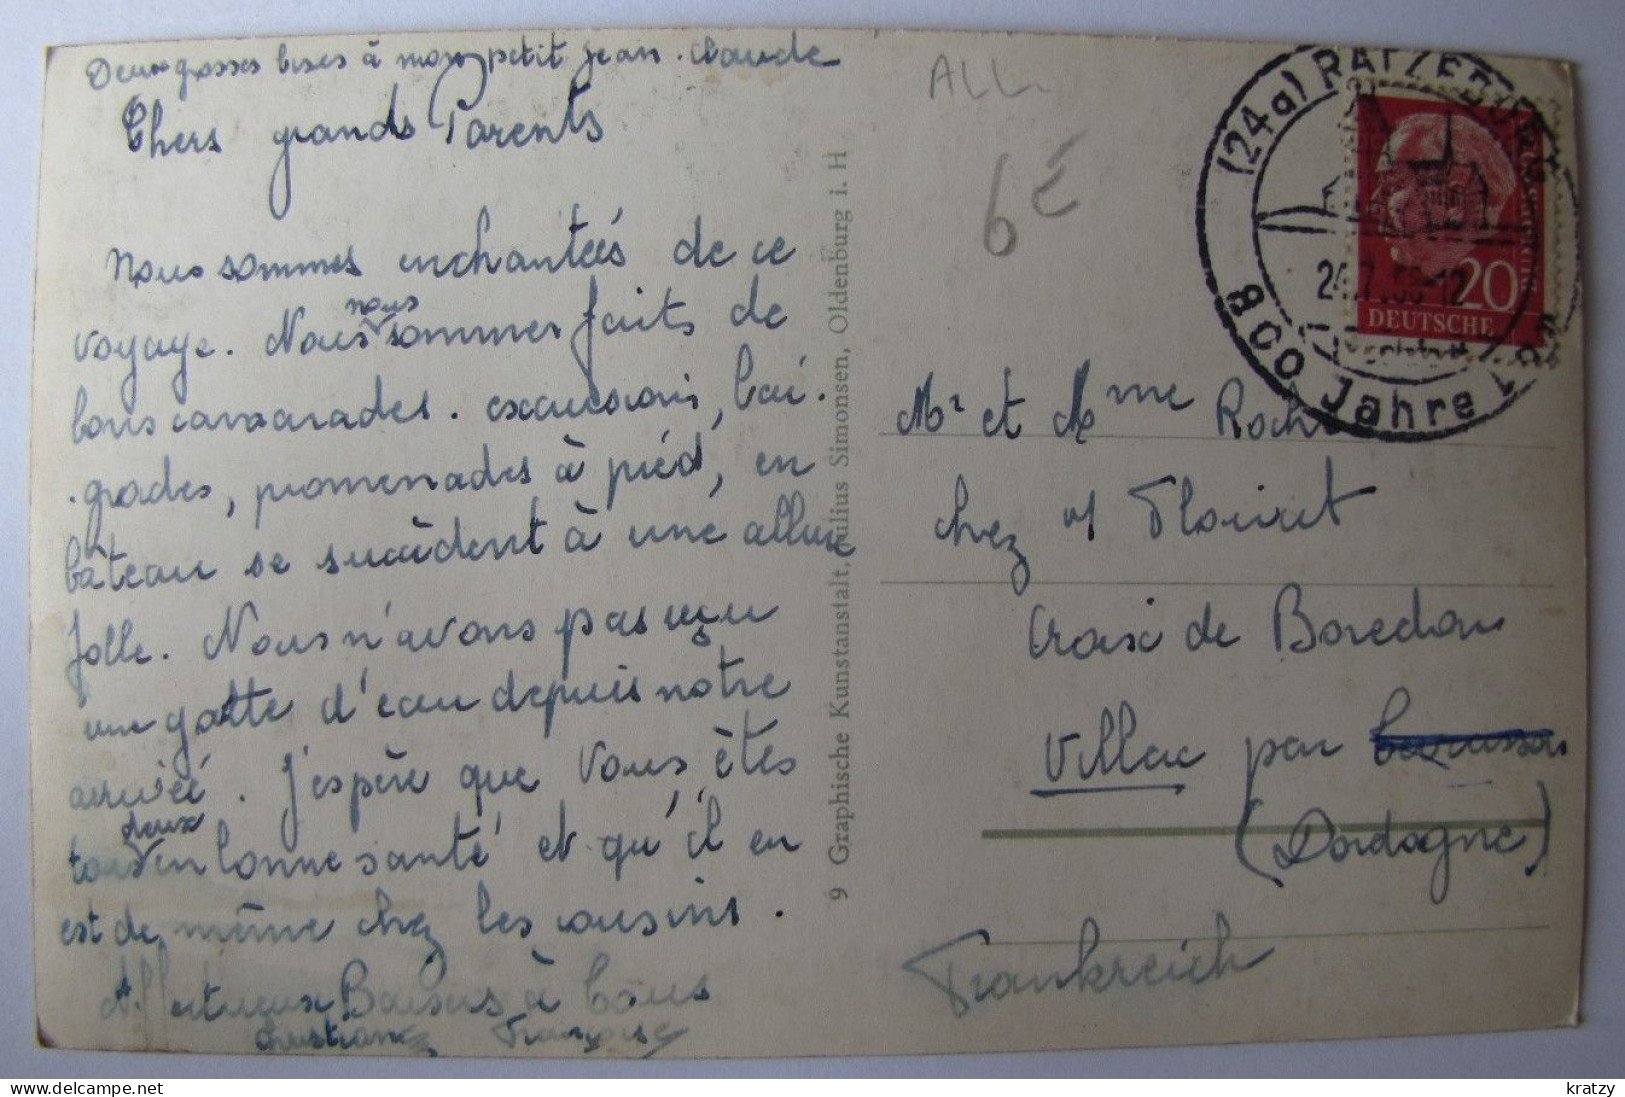 Deux grosses bises à mon petit Jean-Claude
Chers grands Parents
Nous sommes enchantées de ce
voyage. Nous nous sommes faits de
bons camarades. excursions, bai-
-gnades, promenades à pied, en
bâteau se succèdent à une allure
folle. Nous n'avons pas reçu
une goutte d'eau depuis notre
arrivée. J'espère que vous êtes
tous deux en bonne santé et qu'il en
est de même chez les cousins.
Affectueux Baisers à tous
Christiane Françoise
9 Graphische Kunstanstalt, Julius Simonsen, Oldenburg i. H
ALL
6€
(24a) RATZEBURG
800 Jahre
20
DEUTSCHE
Mr et Mme Roche
chez M Flouret
Croix de Boredon
Villac par
(Dordogne)
Frankreich
delcampe.net
kratzy